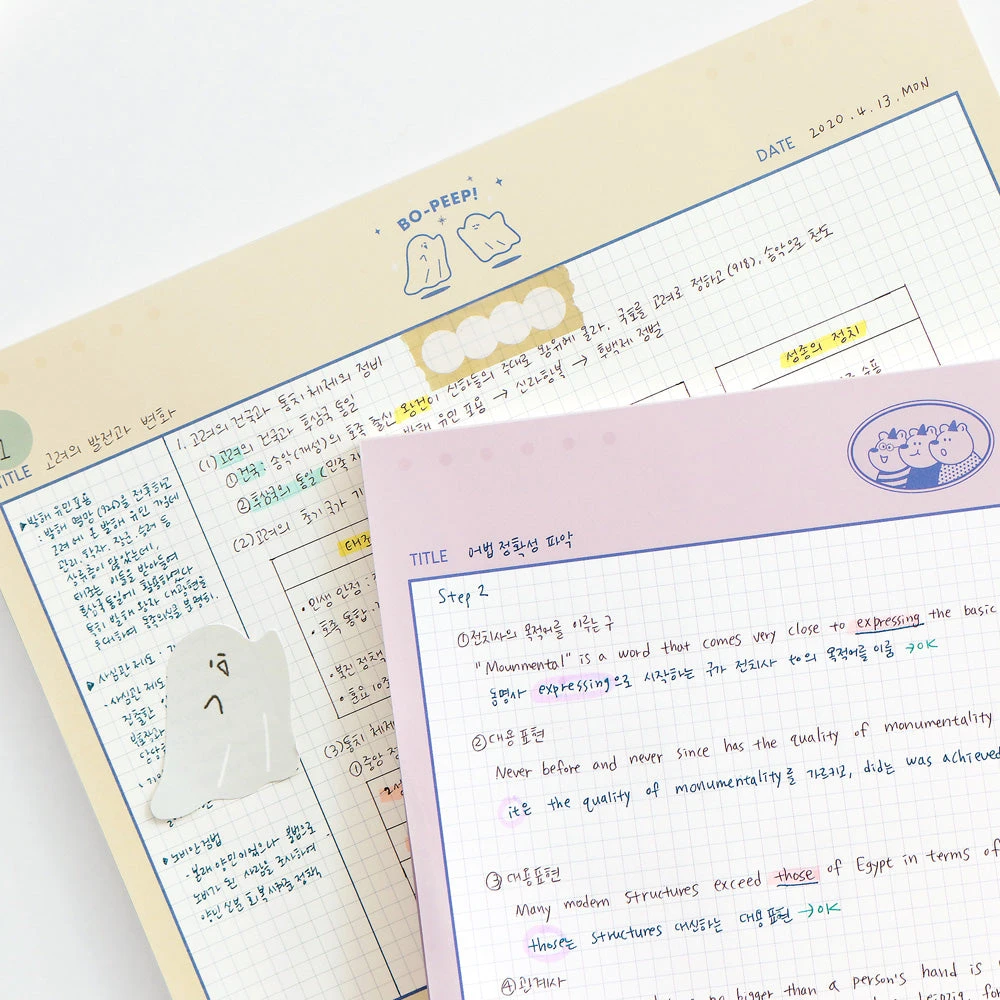 BO-PEEP!
DATE 2020.4.13.MON
1
TITLE 고려의 발전과 변화
1. 고려의 건국과 통치체제의 정비
(1) 고려의 건국과 후삼국 통일
①건국: 송악(개성)의 호족 출신 왕건이 신하들의 추대로 왕위에 올라. 국호를 고려로 정하고(918), 송악으로 천도
②후삼국의 통일(민족 재 발해 유민 포용 → 신라항복 → 후백제 정벌
(2) 고려의 초기 국가 기
성종의 정치
태조
• 민생 안정 :
• 호족 통합
• 북진 정책
(3) 통치 체제
①중앙 정
▶발해 유민 포용
: 발해 멸망(926)을 전후하고
고려에 온 발해 유민 가운데
관리, 학자, 장군, 승려 등
상류층이 많았는데,
태조는 이들을 받아들여
후삼국 통일에 활용하였다
특히 발해 왕자 대광현을
우대하여 동족의식을 분명히.
▶사심관 제도 :
사심관 제도
▶노비안검법
본래 양민이었으나 불법으로
노비가 된 사람을 조사하여
양인 신분 회복시켜준 정책
TITLE 어법 정확성 파악
Step 2
①전치사의 목적어를 이루는 구
"Mounmental" is a word that comes very close to expressing the basic
동명사 expressing으로 시작하는 구가 전치사 to의 목적어를 이룸 →OK
②대용표현
Never before and never since has the quality of monumentality
it은 the quality of monumentality를 가르키고, did는 was achieved
③ 대용표현
Many modern structures exceed those of Egypt in terms of
those는 structures 대신하는 대용표현 →OK
④관계사
no bigger than a person's hand is